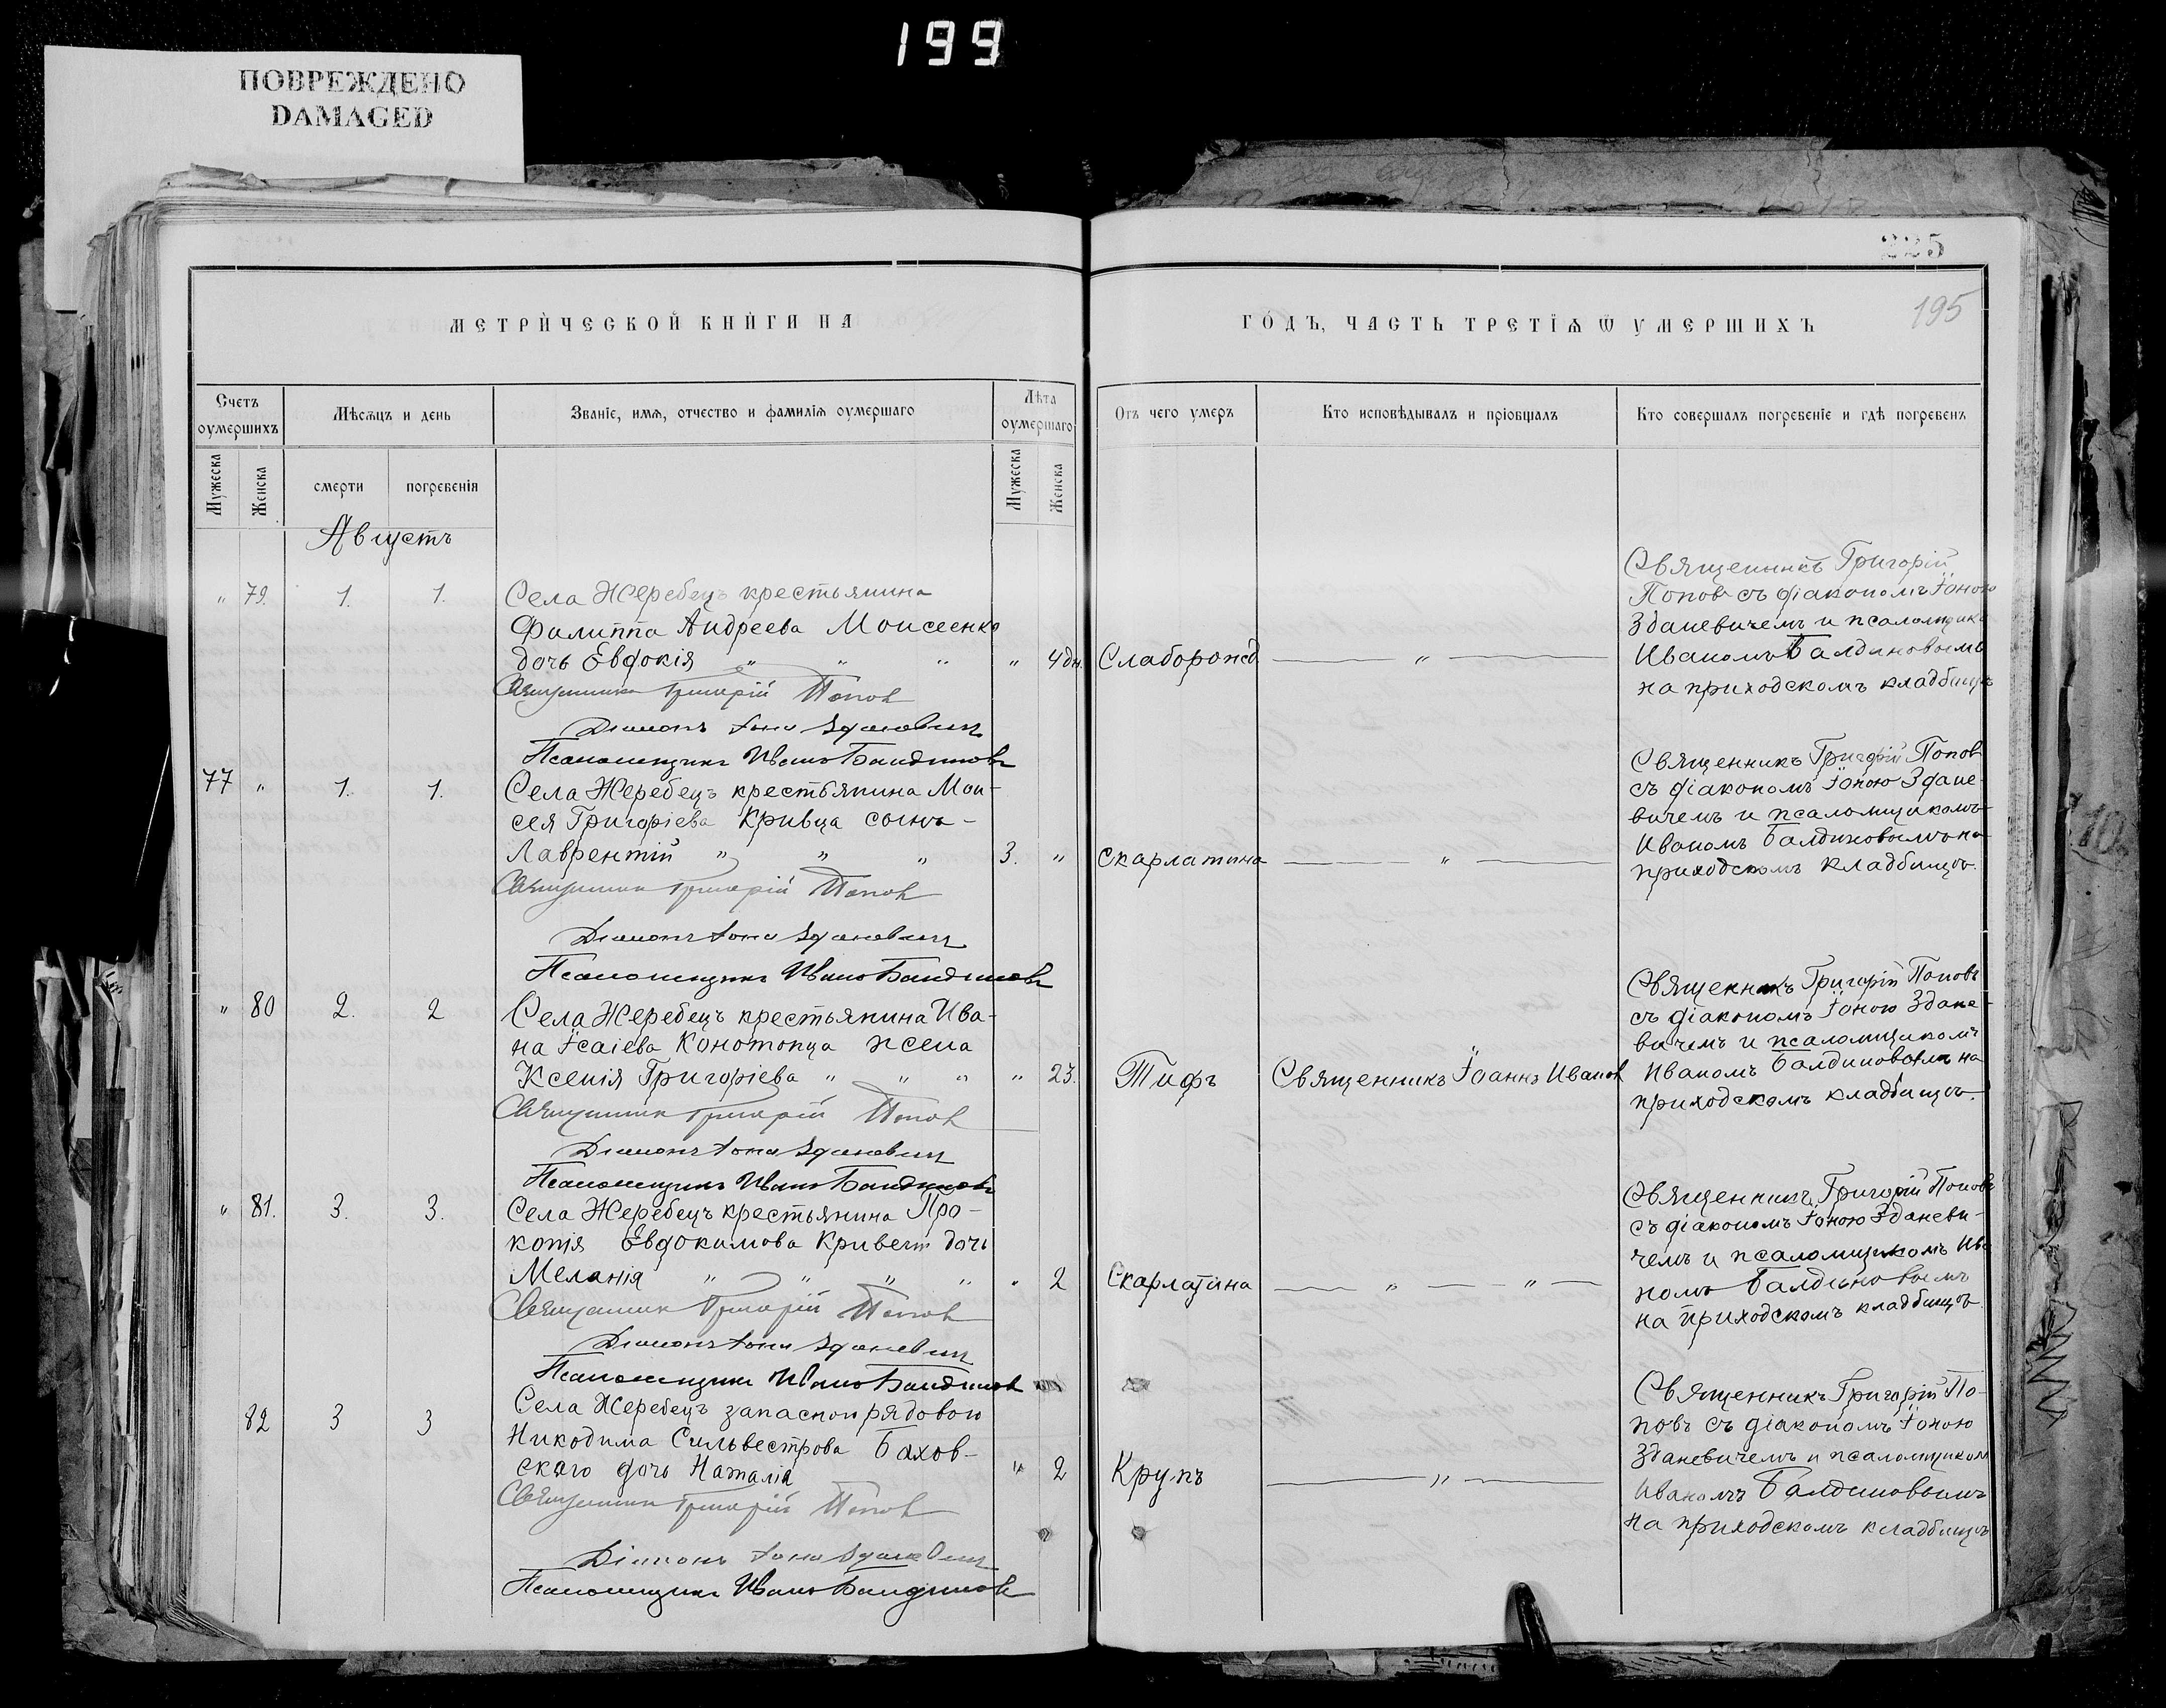 199
ПОВРЕЖДЕНО
DAMAGED
225
195
МЕТРИЧЕСКОЙ КНИГИ НА
ГОДЪ, ЧАСТЬ ТРЕТІѦ Ѿ УМЕРШИХЪ
Счетъ оумершихъ
Мѣсѧцъ и день
Званіе, имѧ, отчество и фамиліѧ оумершаго
Лѣта оумершаго
Отъ чего умеръ
Кто исповѣдывалъ и пріобщалъ
Кто совершалъ погребеніе и гдѣ погребенъ
Мужеска
Женска
смерти
погребенія
Мужеска
Женска
Августъ
" 79. 1. 1.
Села Жеребецъ крестьянина
Филиппа Андреева Моисеенко
дочь Евдокія " " "
" 4 дн.
Слаборожд
"
Священникъ Григорій
Поповъ съ діакономъ Іоною
Зданевичемъ и псаломщико
Иваномъ Балдиновымъ
на приходскомъ кладбищѣ
Священникъ Григорій Попов
Діаконъ Іона Зданевич
Псаломщикъ Иванъ Балдиновъ
77 " 1. 1.
Села Жеребецъ крестьянина Мои-
сея Григоріева Кривца сынъ -
Лаврентій " " "
3. "
Скарлатина
"
Священникъ Григорій Попов
съ діакономъ Іоною Здане-
вичемъ и псаломщикомъ
Иваномъ Балдиновымъ на
приходскомъ кладбищѣ.
Священникъ Григорій Попов
Діаконъ Іона Зданевич
Псаломщикъ Иванъ Балдиновъ
" 80 2. 2
Села Жеребецъ крестьянина Ива-
на Ісаіева Конотопца жена
Ксенія Григоріева " " "
" 23.
Тифъ
Священникъ Іоаннъ Иванов
Священникъ Григорій Поповъ
съ діакономъ Іоною Здане-
вичемъ и псаломщикомъ
Иваномъ Балдиновымъ на
приходскомъ кладбищѣ.
Священникъ Григорій Попов
Діаконъ Іона Зданевич
Псаломщикъ Иванъ Балдиновъ
" 81. 3. 3.
Села Жеребецъ крестьянина Про-
копія Евдокимова Кривец дочь
Меланія " " " "
" 2
Скарлатина
" "
Священникъ Григорій Поповъ
съ діакономъ Іоною Зданеви-
чемъ и псаломщикомъ Ива
номъ Балдиновымъ
на приходскомъ кладбищѣ.
Священникъ Григорій Попов
Діаконъ Іона Зданевич
Псаломщикъ Иванъ Балдинов
82 3 3
Села Жеребецъ запасного рядового
Никодима Сильвестрова Бахов-
ского дочь Наталія
" 2
Крупъ
"
Священникъ Григорій По-
повъ съ діакономъ Іоною
Зданевичемъ и псаломщиком
Иваномъ Балдиновымъ
на приходскомъ кладбищѣ
Священникъ Григорій Попов
Діаконъ Іона Зданевич
Псаломщикъ Иванъ Балдинов